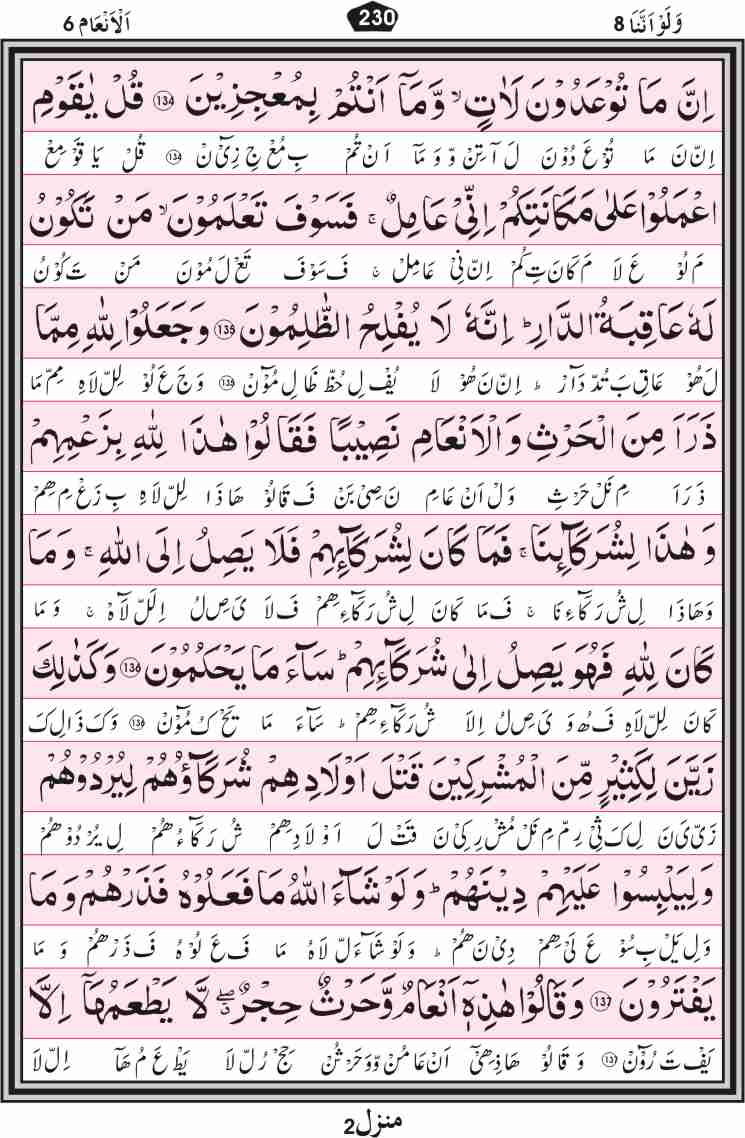 وَلَوْ اَنَّنَا 8 230 اَلْاَنْعَام 6
اِنَّ مَا تُوْعَدُوْنَ لَاٰتٍ ۙ وَّمَاۤ اَنْتُمْ بِمُعْجِزِيْنَ ۝134 قُلْ يٰقَوْمِ
اِنّ نَ مَا تُوْعَ دُوْنَ لَ آ تِنْ وّ وَ مَا اَنْ تُمْ بِ مُعْ جِ زِیْٓ نْ ۝134 قُلْ يَا قَوْ مِعْ
اعْمَلُوْا عَلٰى مَكَانَتِكُمْ اِنِّىْ عَامِلٌ ۚ فَسَوْفَ تَعْلَمُوْنَ ۙ مَنْ تَكُوْنُ
مَ لُوْ عَ لَا مَ كَانَ تِ كُمْ اِنّ نِىْ عَامِلْ ۚ فَ سَوْفَ تَعْ لَ مُوْنَ مَنْ تَ كُوْنُ
لَهٗ عَاقِبَةُ الدَّارِ ؕ اِنَّهٗ لَا يُفْلِحُ الظّٰلِمُوْنَ ۝135 وَجَعَلُوْا لِلّٰهِ مِمَّا
لَ هُوْ عَاقِ بَ تُدّ دَآرْ ؕ اِنّ نَ هُوْ لَا يُفْ لِ حُظّ ظَا لِ مُوْٓنْ ۝135 وَ جَ عَ لُوْ لِلّ لَاهِ مِمّ مَا
ذَرَاَ مِنَ الْحَرْثِ وَالْاَنْعَامِ نَصِيْبًا فَقَالُوْا هٰذَا لِلّٰهِ بِزَعْمِهِمْ
ذَ رَ اَ مِ نَلْ حَرْثِ وَلْ اَنْ عَامِ نَ صِىْ بَنْ فَ قَالُوْ هَاذَا لِلّ لَاهِ بِ زَعْ مِ هِمْ
وَهٰذَا لِشُرَكَآئِنَا ۚ فَمَا كَانَ لِشُرَكَآئِهِمْ فَلَا يَصِلُ اِلَى اللّٰهِ ۚ وَمَا
وَ هَاذَا لِ شُ رَ كَآءِ نَا ۚ فَ مَا كَانَ لِ شُ رَ كَآءِ هِمْ فَ لَا يَ صِ لُ اِلَلّ لَآهْ ۚ وَ مَا
كَانَ لِلّٰهِ فَهُوَ يَصِلُ اِلٰى شُرَكَآئِهِمْ ؕ سَآءَ مَا يَحْكُمُوْنَ ۝136 وَكَذٰلِكَ
كَانَ لِلّ لَاهِ فَ هُ وَ يَ صِ لُ اِلَا شُ رَ كَآءِ هِمْ ؕ سَآءَ مَا يَحْ كُ مُوْٓنْ ۝136 وَ كَ ذَالِ كَ
زَيَّنَ لِكَثِيْرٍ مِّنَ الْمُشْرِكِيْنَ قَتْلَ اَوْلَادِهِمْ شُرَكَآؤُهُمْ لِيُرْدُوْهُمْ
زَىّ يَ نَ لِ كَ ثِىْ رِمّ مِ نَلْ مُشْ رِ كِىْ نَ قَتْ لَ اَوْ لَادِهِمْ شُ رَ كَآءُ هُمْ لِ يُرْ دُوْ هُمْ
وَلِيَلْبِسُوْا عَلَيْهِمْ دِيْنَهُمْ ؕ وَلَوْ شَآءَ اللّٰهُ مَا فَعَلُوْهُ فَذَرْهُمْ وَمَا
وَ لِ يَلْ بِ سُوْ عَ لَىْ هِمْ دِىْ نَ هُمْ ؕ وَ لَوْ شَآءَلّ لَاهُ مَا فَ عَ لُوْ هُ فَ ذَرْ هُمْ وَ مَا
يَفْتَرُوْنَ ۝137 وَقَالُوْا هٰذِهٖۤ اَنْعَامٌ وَّحَرْثٌ حِجْرٌ ۖ لَّا يَطْعَمُهَاۤ اِلَّا
يَفْ تَ رُوْٓنْ ۝137 وَ قَالُوْ هَاذِهِىْٓ اَنْ عَامُنْ وّ وَحَرْثُنْ حِجْ رُلّ لَا يَطْ عَ مُ هَآ اِلّ لَا
منزل2